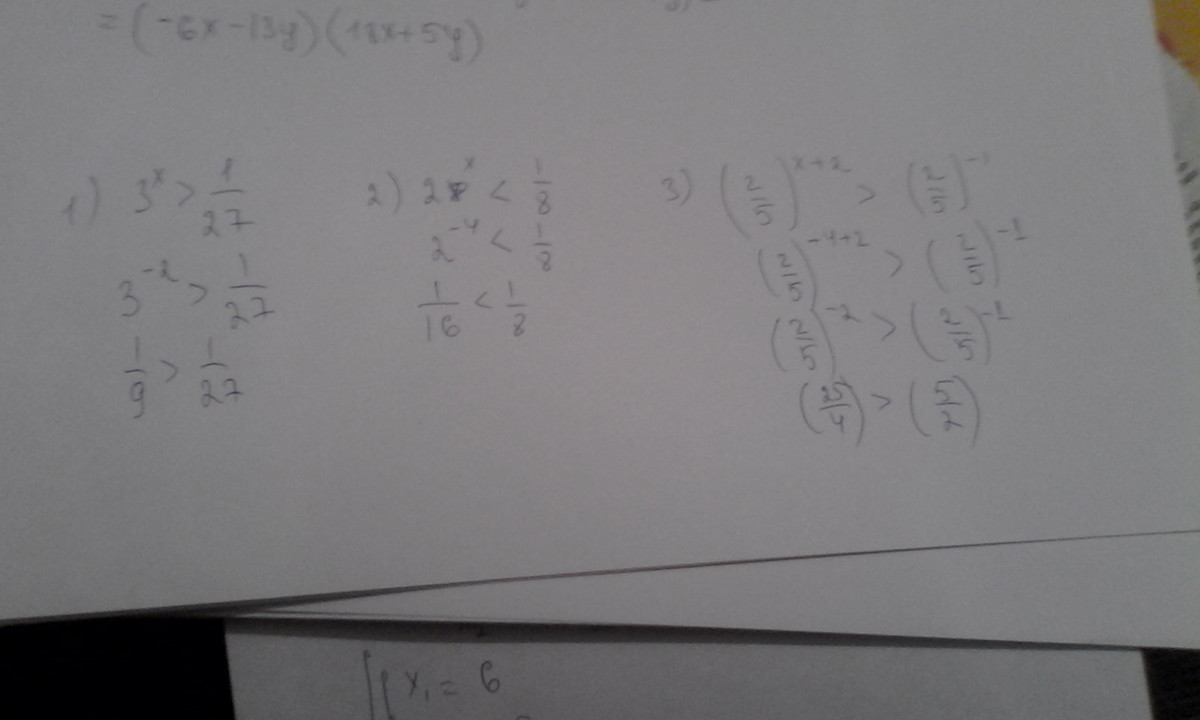 = (-6x-13y)(18x+5y)
1) 3^x > 1/27
3^-2 > 1/27
1/9 > 1/27
2) 2^x < 1/8
2^-4 < 1/8
1/16 < 1/8
3) (2/5)^x+2 > (2/5)^-1
(2/5)^-4+2 > (2/5)^-1
(2/5)^-2 > (2/5)^-1
(25/4) > (5/2)
x₁ = 6